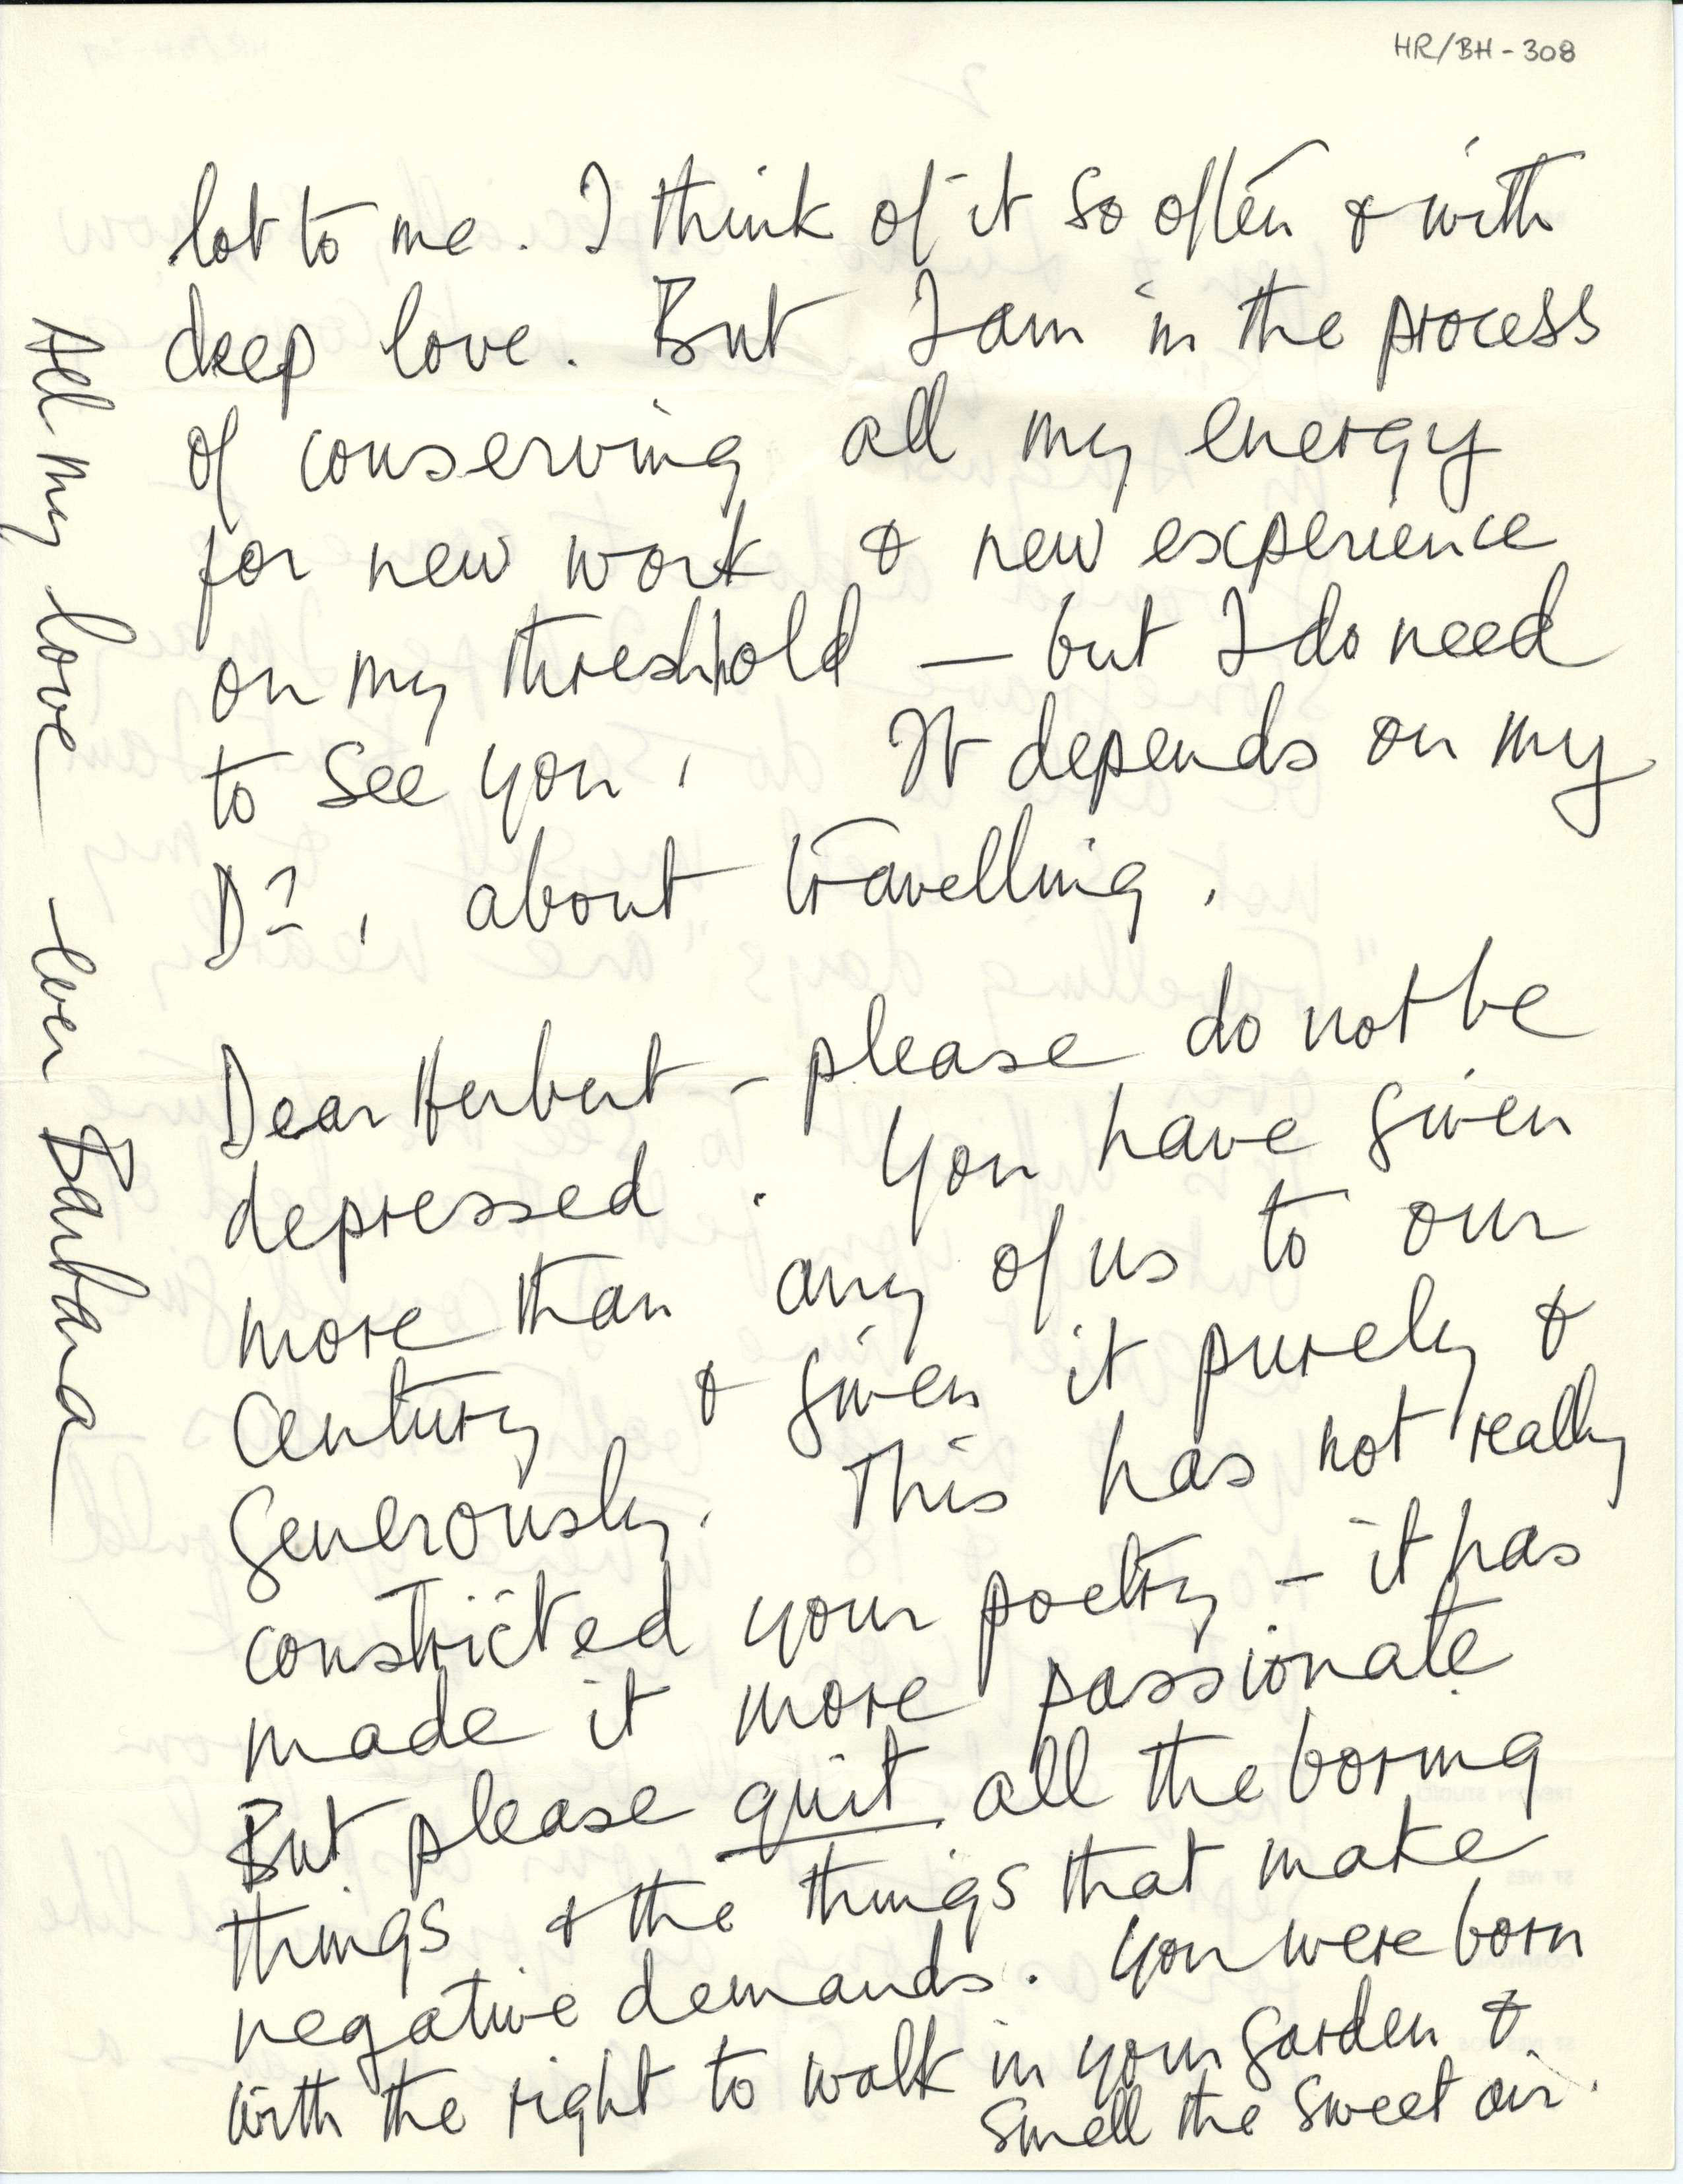 HR/BH - 308
lot to me. I think of it so often & with
deep love. But I am in the process
of conserving all my energy
for new work & new experience
on my threshold — but I do need
to see you. It depends on my
Dr. about travelling.
Dear Herbert - please do not be
depressed. You have given
more than any of us to our
Century & given it purely &
generously. This has not really
constricted your poetry - it has
made it more passionate
But please quit all the boring
things & the things that make
negative demands. You were born
with the right to walk in your garden &
smell the sweet air.
All my love ever Barbara